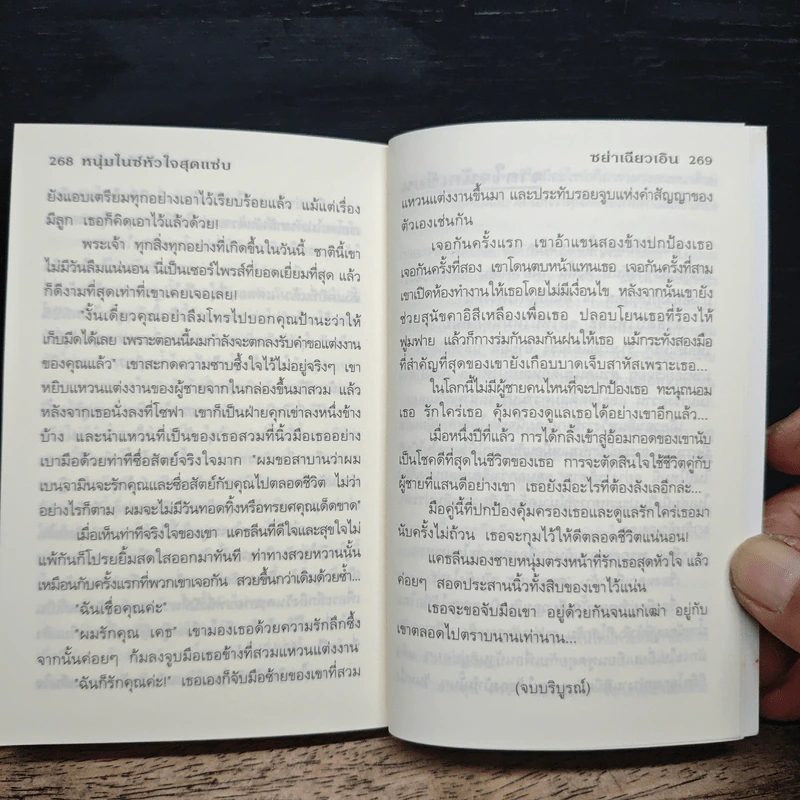 268 หนุ่มไนซ์หัวใจสุดแซ่บ
ยังแอบเตรียมทุกอย่างเอาไว้เรียบร้อยแล้ว แม้แต่เรื่อง
มีลูก เธอก็คิดเอาไว้แล้วด้วย!
พระเจ้า ทุกสิ่งทุกอย่างที่เกิดขึ้นในวันนี้ ชาตินี้เขา
ไม่มีวันลืมแน่นอน นี่เป็นเซอร์ไพรส์ที่ยอดเยี่ยมที่สุด แล้ว
ก็ดีงามที่สุดเท่าที่เขาเคยเจอเลย!
"งั้นเดี๋ยวคุณอย่าลืมโทรไปบอกคุณป้านะว่าให้
เก็บมีดได้เลย เพราะตอนนี้ผมกำลังจะตกลงรับคำขอแต่งงาน
ของคุณแล้ว" เขาสะกดความซาบซึ้งใจไว้ไม่อยู่จริงๆ เขา
หยิบแหวนแต่งงานของผู้ชายจากในกล่องขึ้นมาสวม แล้ว
หลังจากเธอนั่งลงที่โซฟา เขาก็เป็นฝ่ายคุกเข่าลงหนึ่งข้าง
บ้าง และนำแหวนที่เป็นของเธอสวมที่นิ้วมือเธออย่าง
เบามือด้วยท่าทีซื่อสัตย์จริงใจมาก "ผมขอสาบานว่าผม
เบนจามินจะรักคุณและซื่อสัตย์กับคุณไปตลอดชีวิต ไม่ว่า
อย่างไรก็ตาม ผมจะไม่มีวันทอดทิ้งหรือทรยศคุณเด็ดขาด"
เมื่อเห็นท่าทีจริงใจของเขา แคธลีนที่ดีใจและสุขใจไม่
แพ้กันก็โปรยยิ้มสดใสออกมาทันที ท่าทางสวยหวานนั้น
เหมือนกับครั้งแรกที่พวกเขาเจอกัน สวยขึ้นกว่าเดิมด้วยซ้ำ...
"ฉันเชื่อคุณค่ะ"
"ผมรักคุณ เคธ" เขามองเธอด้วยความรักลึกซึ้ง
จากนั้นค่อยๆ ก้มลงจูบมือเธอข้างที่สวมแหวนแต่งงาน
"ฉันก็รักคุณค่ะ!" เธอเองก็จับมือซ้ายของเขาที่สวม
ชย่าเฉียวเอิน 269
แหวนแต่งงานขึ้นมา และประทับรอยจูบแห่งคำสัญญาของ
ตัวเองเช่นกัน
เจอกันครั้งแรก เขาอ้าแขนสองข้างปกป้องเธอ
เจอกันครั้งที่สอง เขาโดนตบหน้าแทนเธอ เจอกันครั้งที่สาม
เขาเปิดห้องทำงานให้เธอโดยไม่มีเงื่อนไข หลังจากนั้นเขายัง
ช่วยสุนัขคาอิสีเหลืองเพื่อเธอ ปลอบโยนเธอที่ร้องไห้
ฟูมฟาย แล้วก็กางร่มกันลมกันฝนให้เธอ แม้กระทั่งสองมือ
ที่สำคัญที่สุดของเขายังเกือบบาดเจ็บสาหัสเพราะเธอ...
ในโลกนี้ไม่มีผู้ชายคนไหนที่จะปกป้องเธอ ทะนุถนอม
เธอ รักใคร่เธอ คุ้มครองดูแลเธอได้อย่างเขาอีกแล้ว...
เมื่อหนึ่งปีที่แล้ว การได้กลิ้งเข้าสู่อ้อมกอดของเขานับ
เป็นโชคดีที่สุดในชีวิตของเธอ การจะตัดสินใจใช้ชีวิตคู่กับ
ผู้ชายที่แสนดีอย่างเขา เธอยังมีอะไรที่ต้องลังเลอีกล่ะ...
มือคู่นี้ที่ปกป้องคุ้มครองเธอและดูแลรักใคร่เธอมา
นับครั้งไม่ถ้วน เธอจะกุมไว้ให้ดีตลอดชีวิตแน่นอน!
แคธลีนมองชายหนุ่มตรงหน้าที่รักเธอสุดหัวใจ แล้ว
ค่อยๆ สอดประสานนิ้วทั้งสิบของเขาไว้แน่น
เธอจะขอจับมือเขา อยู่ด้วยกันจนแก่เฒ่า อยู่กับ
เขาตลอดไปตราบนานเท่านาน...
(จบบริบูรณ์)